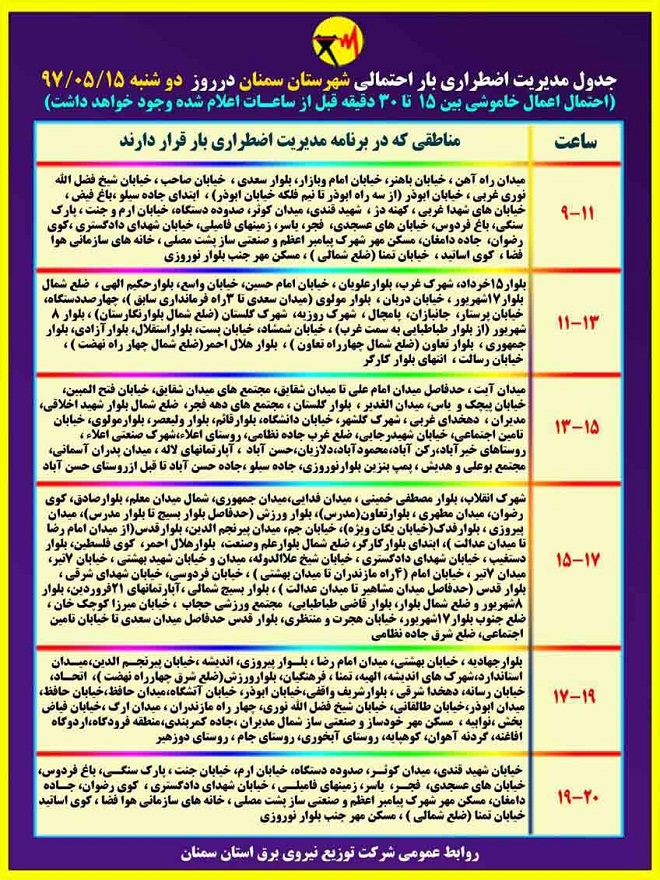 جدول مدیریت اضطراری بار احتمالی شهرستان سمنان درروز دو شنبه ۹۷/۰۵/۱۵
(احتمال اعمال خاموشی بین ۱۵ تا ۳۰ دقیقه قبل از ساعات اعلام شده وجود خواهد داشت)
ساعت
مناطقی که در برنامه مدیریت اضطراری بار قرار دارند
۹-۱۱
میدان راه آهن ، خیابان باهنر، خیابان امام وبازار، بلوار سعدی ، خیابان صاحب ، خیابان شیخ فضل الله
نوری غربی ، خیابان ابوذر (از سه راه ابوذر تا نیم فلکه خیابان ابوذر) ، ابتدای جاده سیلو ،باغ فیض ،
خیابان های شهدا غربی ، کهنه دژ ، شهید قندی، میدان کوثر، صدوده دستگاه، خیابان ارم و جنت ، پارک
سنگی، باغ فردوس، خیابان های عسجدی، فجر، یاسر، زمینهای فامیلی، خیابان شهدای دادگستری ،کوی
رضوان، جاده دامغان، مسکن مهر شهرک پیامبر اعظم و صنعتی ساز پشت مصلی ، خانه های سازمانی هوا
فضا ، کوی اساتید ، خیابان تمنا (ضلع شمالی ) ، مسکن مهر جنب بلوار نوروزی
۱۱-۱۳
بلوار۱۵خرداد، شهرک غرب، بلوارعلویان ، خیابان امام حسین، خیابان واسع، بلوارحکیم الهی ، ضلع شمال
بلوار۱۷شهریور ، خیابان دربان ، بلوار مولوی (میدان سعدی تا ۳راه فرمانداری سابق )، چهارصددستگاه،
خیابان پرستار، جانبازان، یامچال ، شهرک روزیه، شهرک گلستان (ضلع شمال بلوارنگارستان) ، بلوار ۸
شهریور (از بلوار طباطبایی به سمت غرب) ، خیابان شمشاد، خیابان پست، بلواراستقلال، بلوارآزادی، بلوار
جمهوری ، بلوار تعاون (ضلع شمال چهارراه تعاون ) ، بلوار هلال احمر(ضلع شمال چهار راه نهضت ) ،
خیابان رسالت ، انتهای بلوار کارگر
۱۳-۱۵
میدان آیت ، حدفاصل میدان امام علی تا میدان شقایق، مجتمع های میدان شقایق، خیابان فتح المبین،
خیابان پیچک و یاس، میدان الغدیر ، بلوار گلستان ، مجتمع های دهه فجر، ضلع شمال بلوار شهید اخلاقی،
مدیران ، دهخدای غربی ، شهرک گلشهر، خیابان دانشگاه، بلوارقائم، بلوار ولیعصر، بلوارمولوی، خیابان
تامین اجتماعی، خیابان شهیدرجایی، ضلع غرب جاده نظامی، روستای اعلاء،شهرک صنعتی اعلاء ،
روستاهای خیرآباد، رکن آباد،محمودآباد،دلازیان،حسن آباد ، آپارتمانهای لاله ، میدان پدران آسمانی،
مجتمع بوعلی و هدیش ، پمپ بنزین بلوارنوروزی، جاده سیلو ،جاده حسن آباد تا قبل ازروستای حسن آباد
۱۵-۱۷
شهرک انقلاب، بلوار مصطفی خمینی ، میدان فدایی،میدان جمهوری، شمال میدان معلم، بلوارصادق، کوی
رضوان، میدان مطهری ، بلوارتعاون(مدرس)، بلوار ورزش (حدفاصل بلوار بسیج تا بلوار مدرس)، میدان
پیروزی ، بلوارفدک(خیابان یگان ویژه)، خیابان جم، میدان پیرنجم الدین، بلوارقدس(از میدان امام رضا
تا میدان عدالت )، ابتدای بلوارکارگر، ضلع شمال بلوارعلم وصنعت، بلوارهلال احمر، کوی فلسطین، بلوار
دستغیب ، خیابان شهدای دادگستری ، خیابان شیخ علاالدوله، میدان و خیابان شهید بهشتی ، خیابان ۷تیر،
میدان ۷تیر ، خیابان امام (۴راه مازندران تا میدان بهشتی ) ، خیابان فردوسی، خیابان شهدای شرقی ،
بلوار قدس (حدفاصل میدان مشاهیر تا میدان عدالت ) ، بلوار بسیج شمالی ،آپارتمانهای ۲۱فروردین، بلوار
۸شهریور و ضلع شمال بلوار، بلوار قاضی طباطبایی، مجتمع ورزشی حجاب ، خیابان میرزا کوچک خان ،
ضلع جنوب بلوار۱۷شهریور، خیابان هجرت و منتظری، بلوار قدس حدفاصل میدان سعدی تا خیابان تامین
اجتماعی، ضلع شرق جاده نظامی
۱۷-۱۹
بلوارجهادیه ، خیابان بهشتی، میدان امام رضا ، بلوار پیروزی، اندیشه ،خیابان پیرنجم الدین،میدان
استاندارد،شهرک های اندیشه، الهیه، تمنا ، فرهنگیان، بلوارورزش(ضلع شرق چهارراه نهضت )، اتحاد،
خیابان رسانه، دهخدا شرقی ، بلوارشریف واقفی، خیابان ابوذر، خیابان آتشگاه،میدان حافظ،خیابان حافظ،
میدان ابوذر،خیابان طالقانی، خیابان شیخ فضل الله نوری، چهار راه مازندران ، میدان ارک ، خیابان فیاض
بخش ،نوابیه ، مسکن مهر خودساز و صنعتی ساز شمال مدیران ،جاده کمربندی،منطقه فرودگاه،اردوگاه
افاغنه، گردنه آهوان، کوهپایه، روستای آبخوری، روستای جام ، روستای دوزهیر
۱۹-۲۰
خیابان شهید قندی، میدان کوثر، صدوده دستگاه، خیابان ارم، خیابان جنت ، پارک سنگی، باغ فردوس،
خیابان های عسجدی، فجر، یاسر، زمینهای فامیلی ، خیابان شهدای دادگستری ، کوی رضوان، جاده
دامغان، مسکن مهر شهرک پیامبر اعظم و صنعتی ساز پشت مصلی ، خانه های سازمانی هوا فضا ، کوی اساتید
خیابان تمنا (ضلع شمالی ) ، مسکن مهر جنب بلوار نوروزی
روابط عمومی شرکت توزیع نیروی برق استان سمنان